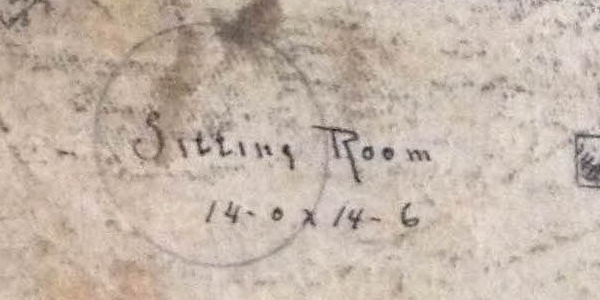 Sitting Room
14-0 x 14-6